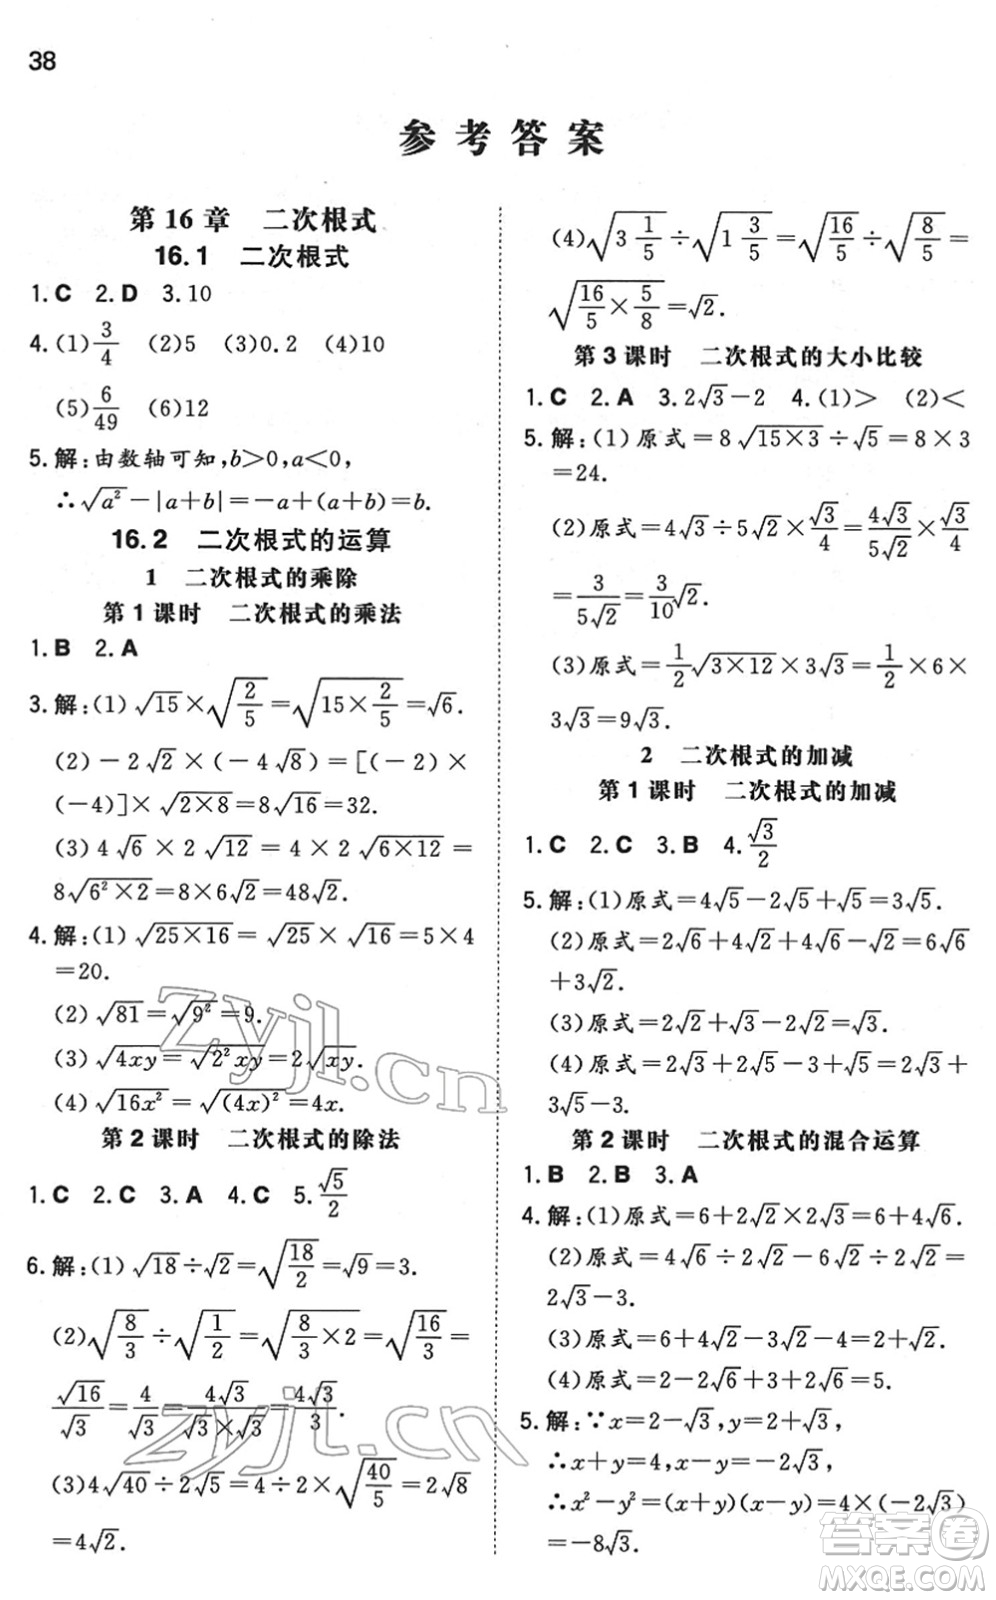 38
参考答案
第 16 章 二次根式
16.1 二次根式
1.C 2.D 3.10
4.(1)3/4 (2)5 (3)0.2 (4)10
(5)6/49 (6)12
5.解:由数轴可知,b>0,a<0,
∴√(a²)-|a+b|=-a+(a+b)=b.
16.2 二次根式的运算
1 二次根式的乘除
第 1 课时 二次根式的乘法
1.B 2.A
3.解:(1)√15×√(2/5)=√(15×2/5)=√6.
(2)-2√2×(-4√8)=[(-2)×
(-4)]×√(2×8)=8√16=32.
(3)4√6×2√12=4×2√(6×12)=
8√(6²×2)=8×6√2=48√2.
4.解:(1)√(25×16)=√25×√16=5×4
=20.
(2)√81=√(9²)=9.
(3)√(4xy)=√(2²xy)=2√(xy).
(4)√(16x²)=√((4x)²)=4x.
第 2 课时 二次根式的除法
1.C 2.C 3.A 4.C 5.√5/2
6.解:(1)√18÷√2=√(18/2)=√9=3.
(2)√(8/3)÷√(1/2)=√(8/3×2)=√(16/3)=
√16/√3=4/√3=4√3/(√3×√3)=4√3/3.
(3)4√40÷2√5=4÷2×√(40/5)=2√8
=4√2.
(4)√(3 1/5)÷√(1 3/5)=√(16/5)÷√(8/5)=
√(16/5×5/8)=√2.
第 3 课时 二次根式的大小比较
1.C 2.A 3.2√3-2 4.(1)> (2)<
5.解:(1)原式=8√(15×3)÷√5=8×3
=24.
(2)原式=4√3÷5√2×√3/4=4√3/5√2×√3/4
=3/5√2=3/10√2.
(3)原式=1/2√(3×12)×3√3=1/2×6×
3√3=9√3.
2 二次根式的加减
第 1 课时 二次根式的加减
1.C 2.C 3.B 4.√3/2
5.解:(1)原式=4√5-2√5+√5=3√5.
(2)原式=2√6+4√2+4√6-√2=6√6
+3√2.
(3)原式=2√2+√3-2√2=√3.
(4)原式=2√3+2√5-3+√5-2√3=
3√5-3.
第 2 课时 二次根式的混合运算
1.B 2.B 3.A
4.解:(1)原式=6+2√2×2√3=6+4√6.
(2)原式=4√6÷2√2-6√2÷2√2=
2√3-3.
(3)原式=6+4√2-3√2-4=2+√2.
(4)原式=2-2√6+3+2√6=5.
5.解:∵x=2-√3,y=2+√3,
∴x+y=4,x-y=-2√3,
∴x²-y²=(x+y)(x-y)=4×(-2√3)
=-8√3.
zyjl.cn
zyjl.cn
答案圈
MXQE.COM